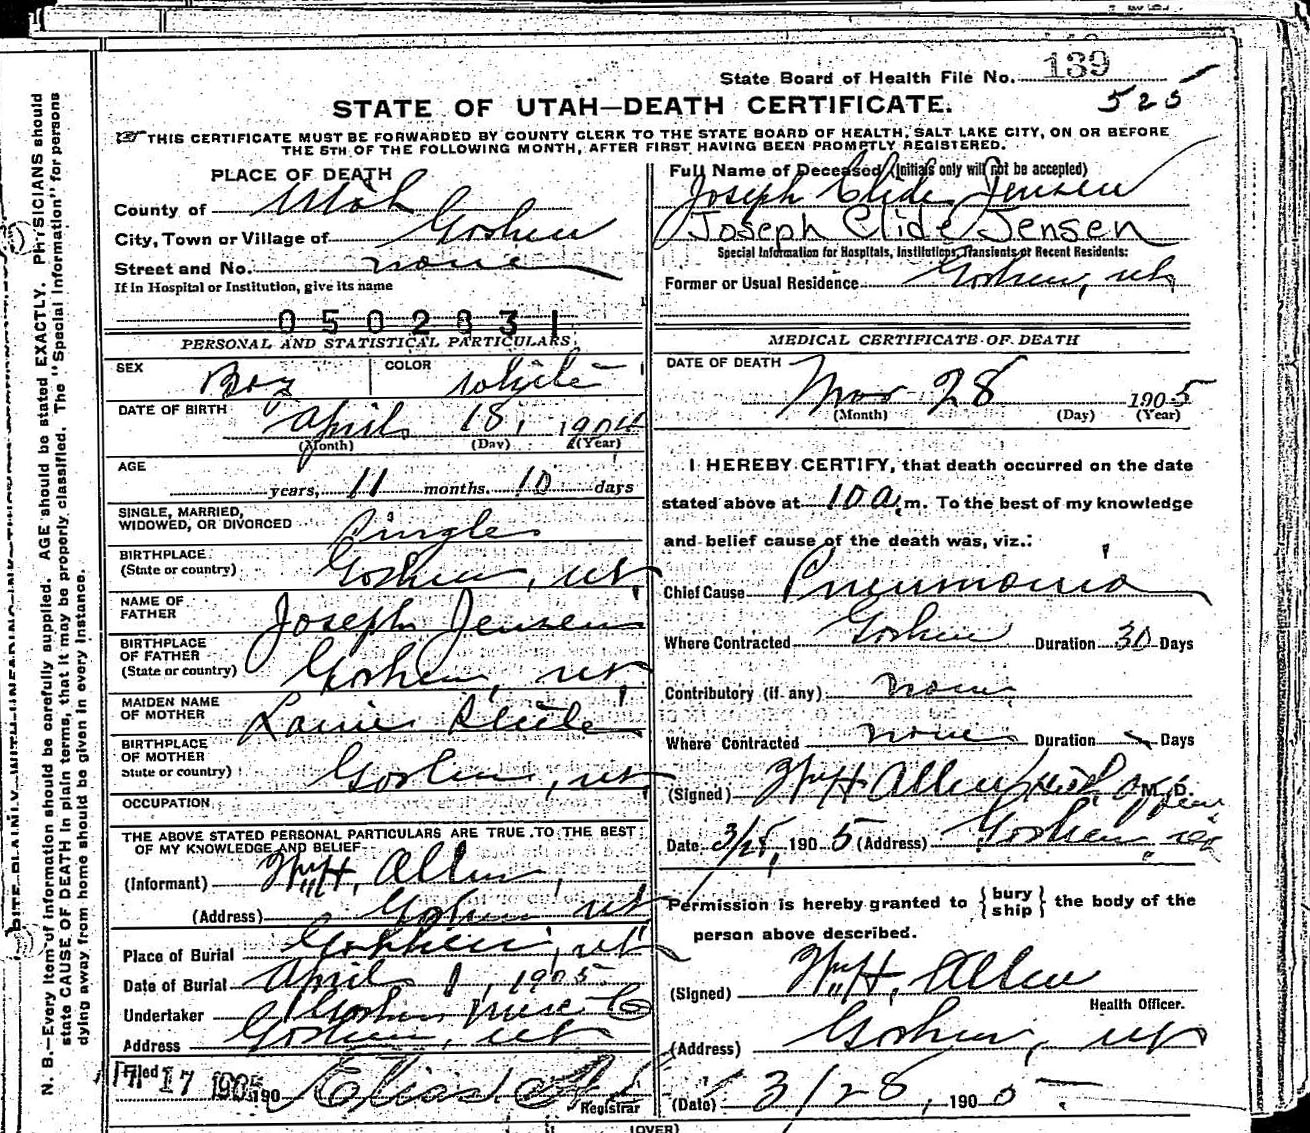 State Board of Health File No. 139
525
STATE OF UTAH—DEATH CERTIFICATE.
THIS CERTIFICATE MUST BE FORWARDED BY COUNTY CLERK TO THE STATE BOARD OF HEALTH, SALT LAKE CITY, ON OR BEFORE
THE 5TH OF THE FOLLOWING MONTH, AFTER FIRST HAVING BEEN PROMPTLY REGISTERED.
PLACE OF DEATH
County of Utah
City, Town or Village of Goshen
Street and No. none
If in Hospital or Institution, give its name
0502831
PERSONAL AND STATISTICAL PARTICULARS
SEX Boy COLOR White
DATE OF BIRTH April 18, 1904
(Month) (Day) (Year)
AGE
years, 11 months. 10 days
SINGLE, MARRIED,
WIDOWED, OR DIVORCED Single
BIRTHPLACE
(State or country) Goshen, Ut
NAME OF
FATHER Joseph Jensen
BIRTHPLACE
OF FATHER
(State or country) Goshen, Ut
MAIDEN NAME
OF MOTHER
BIRTHPLACE
OF MOTHER
State or country) Goshen, Ut
OCCUPATION
THE ABOVE STATED PERSONAL PARTICULARS ARE TRUE TO THE BEST
OF MY KNOWLEDGE AND BELIEF
(Informant) Wm H. Allen,
(Address) Goshen Ut
Place of Burial Goshen, Ut
Date of Burial April 1, 1905
Undertaker Goshen Co
Address Goshen, Ut
Filed 17 1905 190 Elias
Registrar
Full Name of Deceased (Initials only will not be accepted)
Joseph Clide Jensen
Joseph Clide Jensen
Special Information for Hospitals, Institutions, Transients or Recent Residents:
Former or Usual Residence Goshen, Ut
MEDICAL CERTIFICATE OF DEATH
DATE OF DEATH
Mar 28 1905
(Month) (Day) (Year)
I HEREBY CERTIFY, that death occurred on the date
stated above at 10 a. m. To the best of my knowledge
and belief cause of the death was, viz.:
Chief Cause Pneumonia
Where Contracted Goshen Duration 30 Days
Contributory (if any) none
Where Contracted none Duration Days
(Signed) Wm H Allen M. D.
Date 3/28, 1905 (Address) Goshen
Permission is hereby granted to {bury ship} the body of the
person above described.
(Signed) Wm H. Allen
Health Officer.
(Address) Goshen, Ut
(Date) 3/28, 1905
(OVER)
N. B.—Every item of information should be carefully supplied. AGE should be stated EXACTLY. PHYSICIANS should
state CAUSE OF DEATH in plain terms, that it may be properly classified. The "Special Information" for persons
dying away from home should be given in every instance.